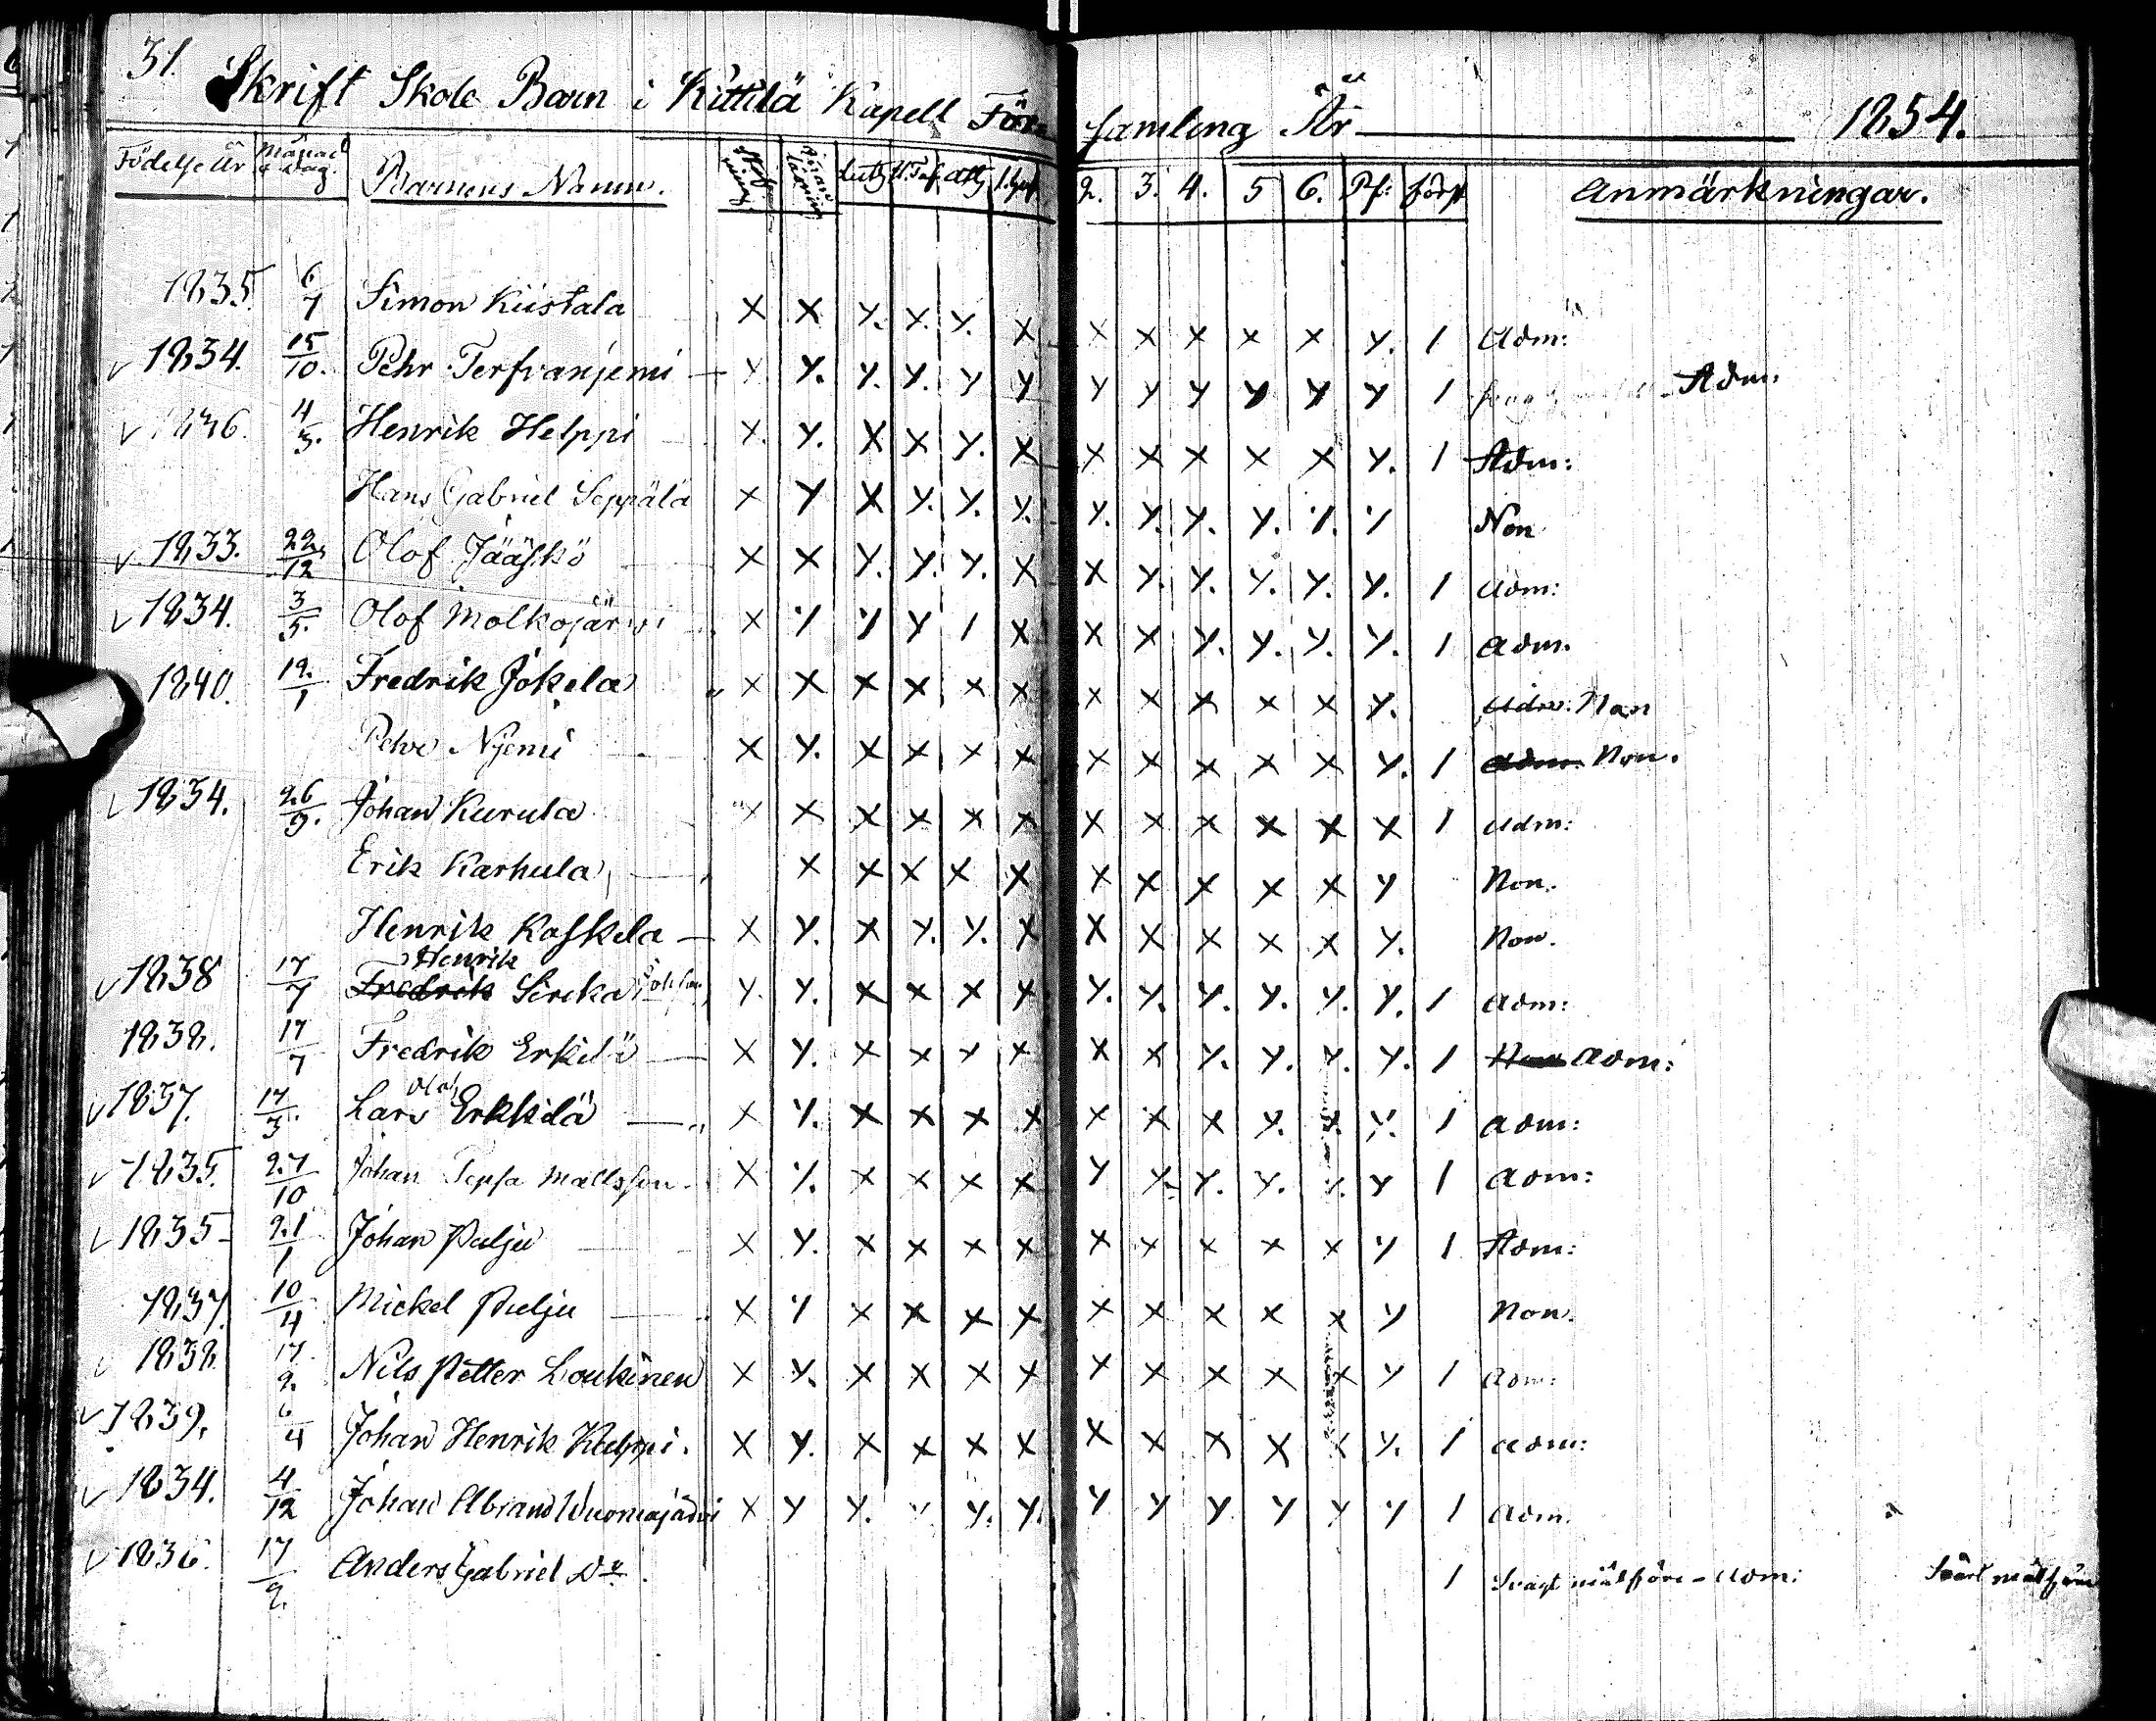 31.
Skrift Skole Barn i Kittilä Kapell Församling År 1854.
Födelse År Månad o Dag Barnens Namn. Lutz H.Taf. Atz 1.Huf. 2. 3. 4. 5 6. Pf: först Anmärkningar.
1835. 6/7 Simon Kiistala X X Y. X. Y. X X X X X X Y. 1 Adm:
1834. 15/10. Pehr Terfvanjemi Y Y. Y. Y. Y Y Y Y Y Y Y Y 1 Adm.
1836. 4/3. Henrik Helppi X. Y. X X Y. X X X X X X Y. 1 Adm:
Hans Gabriel Seppälä X Y X Y. Y. Y. Y. Y. Y. Y. Y. Y Non
1833. 22/12 Olof Jääskö X X Y. Y. Y. X X Y. Y. Y. Y. Y. 1 Adm:
1834. 3/5. Olof Molkojärwi X Y Y Y 1 X X X Y. Y. Y. Y. 1 Adm.
1840. 19./1 Fredrik Jokela X X X X X X X X X X X Y. Adm. Non
Pehr Nijemi X Y. X X X X X X X X X Y. 1 Adm. Non.
1834. 26/9. Johan Kurula X X X X X X X X X X X X 1 Adm:
Erik Karhula X X X X X X X X X X Y Non.
Henrik Kaskela X Y. X Y. Y. X X X X X X Y. Non.
Henrik
1838 17/7 Fredrik Sircka Y. Y. X X X Y Y. Y. Y. Y. Y. Y. 1 Adm:
1838. 17/7 Fredrik Erkilä X Y. X X Y X X X Y. Y. Y. Y. 1 Non Adm:
Olof
1837. 17/3. Lars Erkkilä X Y. X X X X X X X Y. Y. Y. 1 Adm:
1835. 27/10 Johan Tepsa Mattsson X Y. X X X X Y Y. Y. Y. Y. Y 1 Adm:
1835 21/1 Johan Pulju X Y. X X X X X X X X X Y 1 Adm:
1837. 10/4 Mickel Pulju X Y X X X X X X X X X Y Non.
1838. 17/9. Nils Petter Loukinen X Y. X X X X X X X X X Y 1 Adm:
1839. 6/4 Johan Henrik Kulppi. X Y. X X X X X X X X X Y. 1 Adm:
1834. 4/12 Johan Abram Wuomajärvi X Y Y. Y Y. Y. Y Y Y Y Y Y 1 Adm.
1836. 17/9. Anders Gabriel Do 1 Svagt målföre - Adm: Svårt målföre